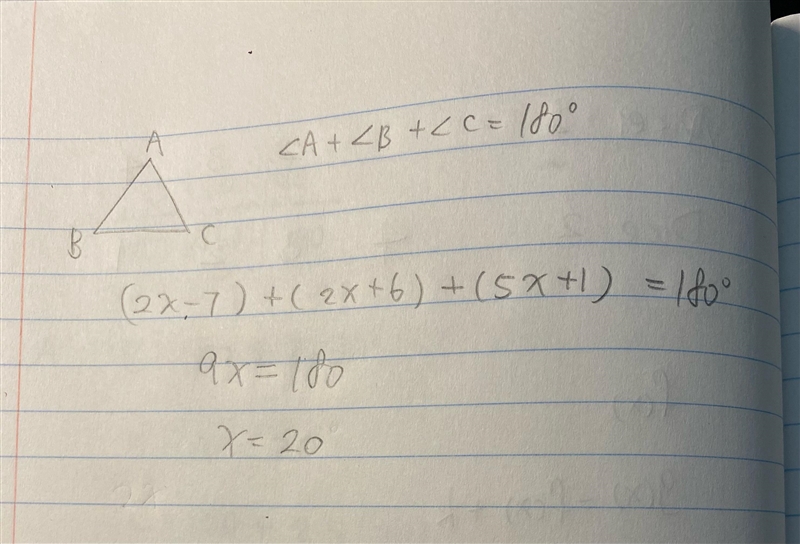 A
∠A + ∠B + ∠C = 180°
B C
(2x-7) + (2x+6) + (5x+1) = 180°
9x = 180
x = 20